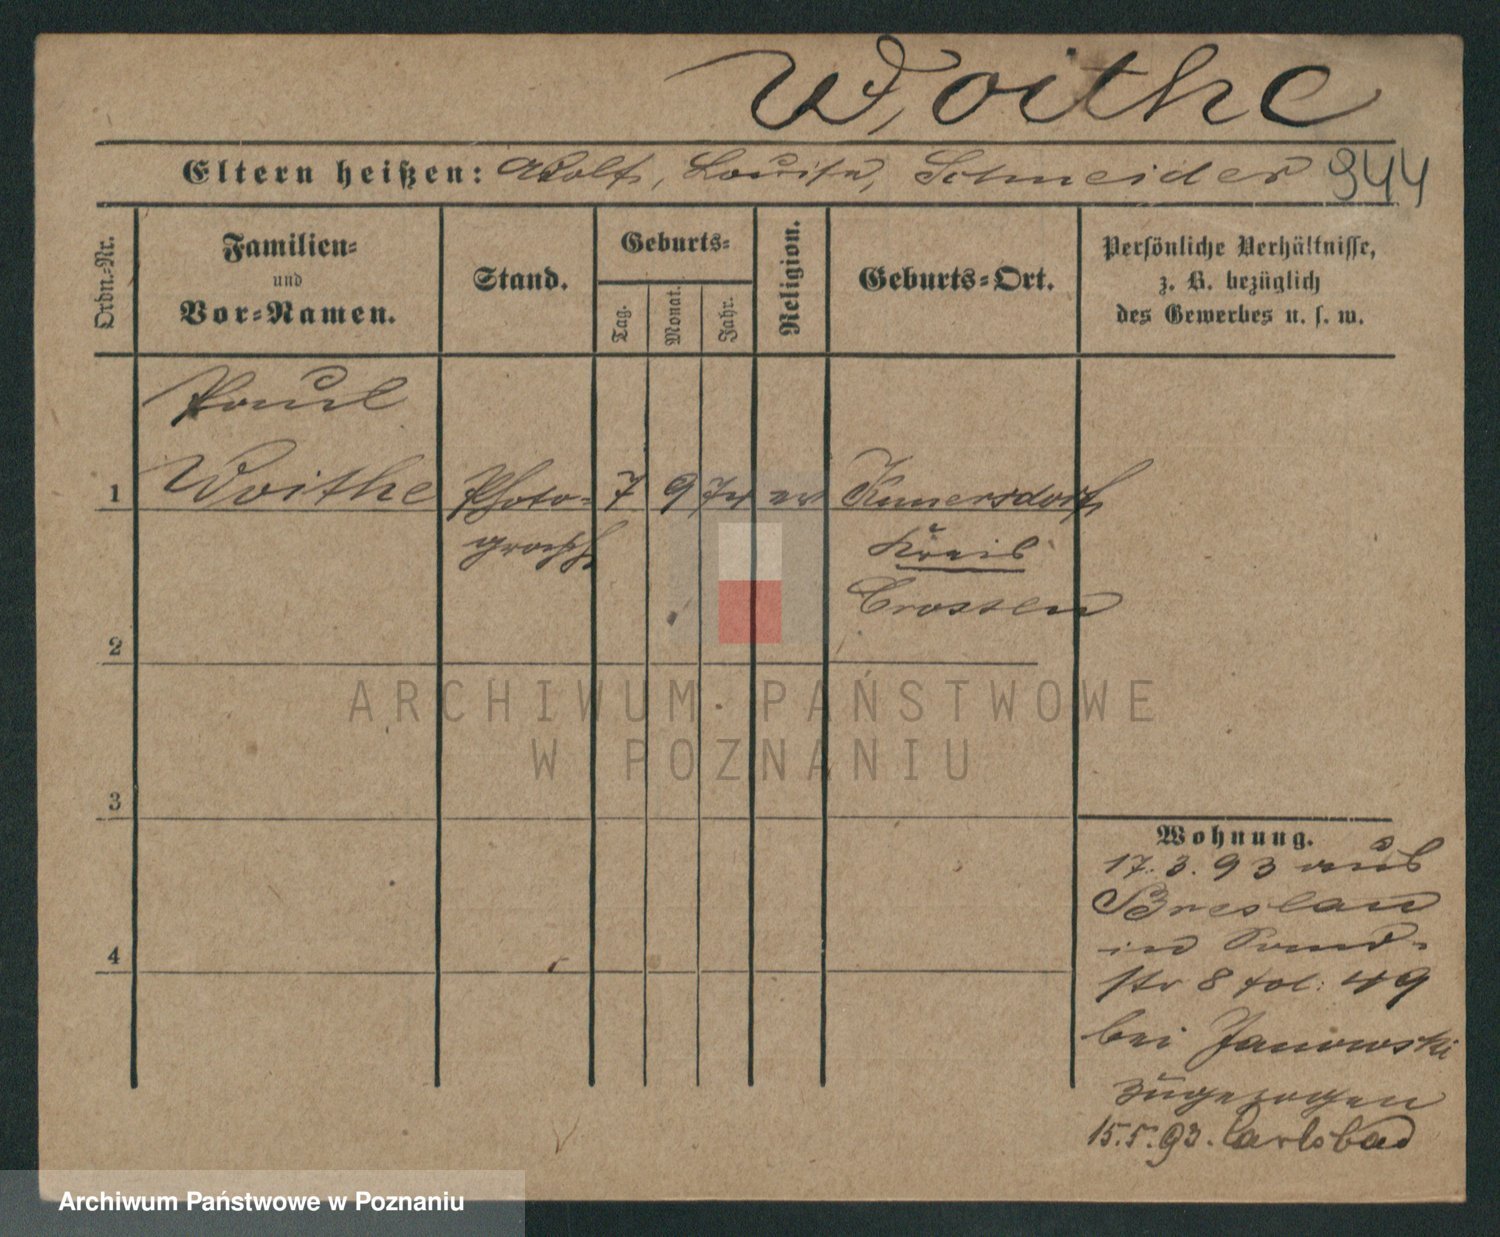 Woithe
Eltern heißen: Adolf, Louise, Schneider 944
Ordn.-Nr.
Familien-
und
Vor-Namen.
Stand.
Geburts-
Tag.
Monat.
Jahr.
Religion.
Geburts-Ort.
Persönliche Verhältnisse,
z. B. bezüglich
des Gewerbes u. s. w.
Paul
1 Woithe Photo- 7 9 74 ev Kunersdorf
graph Kreis
Crossen
2
3
4
ARCHIWUM PAŃSTWOWE
W POZNANIU
Wohnung.
17.3.93 aus
Breslau
in
str 8 fol: 49
bei Janowski
zugezogen
15.5.93. Carlsbad
Archiwum Państwowe w Poznaniu